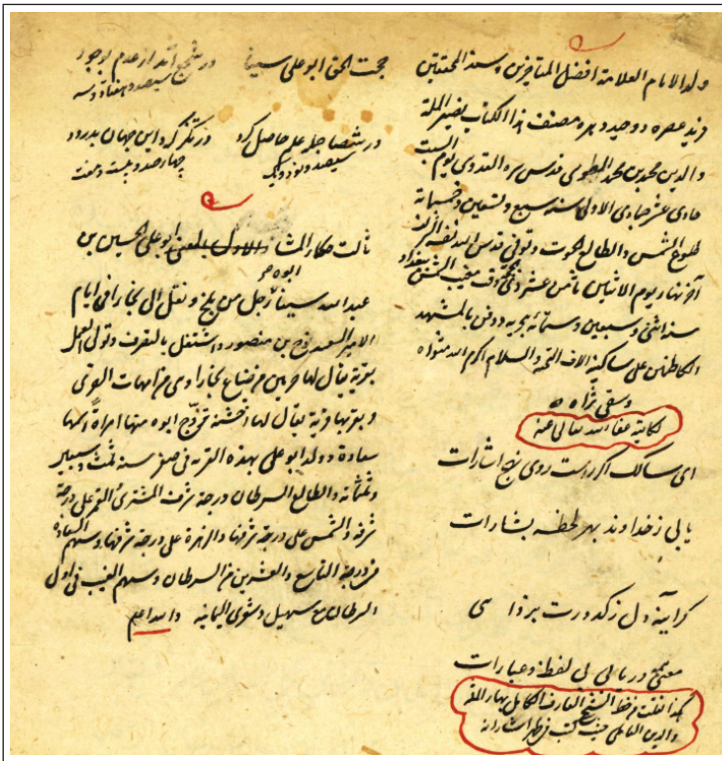 ولد الامام العلامة افضل المتاخرين وسند المحققين
فريد عصره و وحيد دهره مصنف هذا الكتاب نصير الملة
والدين محمد بن محمد الطوسى قدس سره القدوسى يوم السبت
حادى عشر جمادى الاولى سنه سبع وتسعين وخمسمائة
طلوع الشمس والطالع الحوت وتوفى قدس الله نفسه
آخر نهار يوم الاثنين ثامن عشر ذى الحجة مغيب الشمس بغداد
سنه اثنى وسبعين وستمائة ودفن بالمشهد
الكاظمى على ساكنيه الاف التحية والسلام اكرم الله مثواه
وسقى ثراه
لكاتبه عفا الله تعالى عنه
اى سالك اگر درست روى نهج اشارات
يابى ز خداوند بهر لحظه بشارات
گر آينه دل ز كدورت بزدا سى
معنى در يابى بى لفظ و عبارات
كذا نقلت من خط الشيخ العارف الكامل بهاء الملة
والدين العاملى حيث كتب فى ظهر اشاراته
حجت الحق ابو على سينا
در شجع آمد از عدم بوجود
سيصد و هفتاد و سه
در شصا جمله علم حاصل كرد
سيصد و نود و يك
در تكز كرد اين جهان بدرود
چهارصد و بيست و هفت
ثالث حكماء المشا ابو على الحسين بن
ابوه
عبد الله سينا رجل من بلخ ونقل الى بخارا فى ايام
الامير السعيد نوح بن منصور واشتغل بالتصرف وتولى العمل
بقرية يقال لها خرمين من ضياع بخارا وهى من امهات القرى
وبقربها قرية يقال لها افشنة تزوج ابوه منها امراة اسمها
ستارة وولد ابو على بهذه القرية فى صفر سنه ثلث وسبعين
وثلثمائة والطالع السرطان درجة شرف المشترى والقمر على درجة
شرفه والشمس على درجة شرفها والزهرة على درجة شرفها وسهم السعادة
من درجة التاسع والعشرين من السرطان وسهم الغيب فى اول
السرطان مع سهيل وشعرى اليمانية والله اعلم